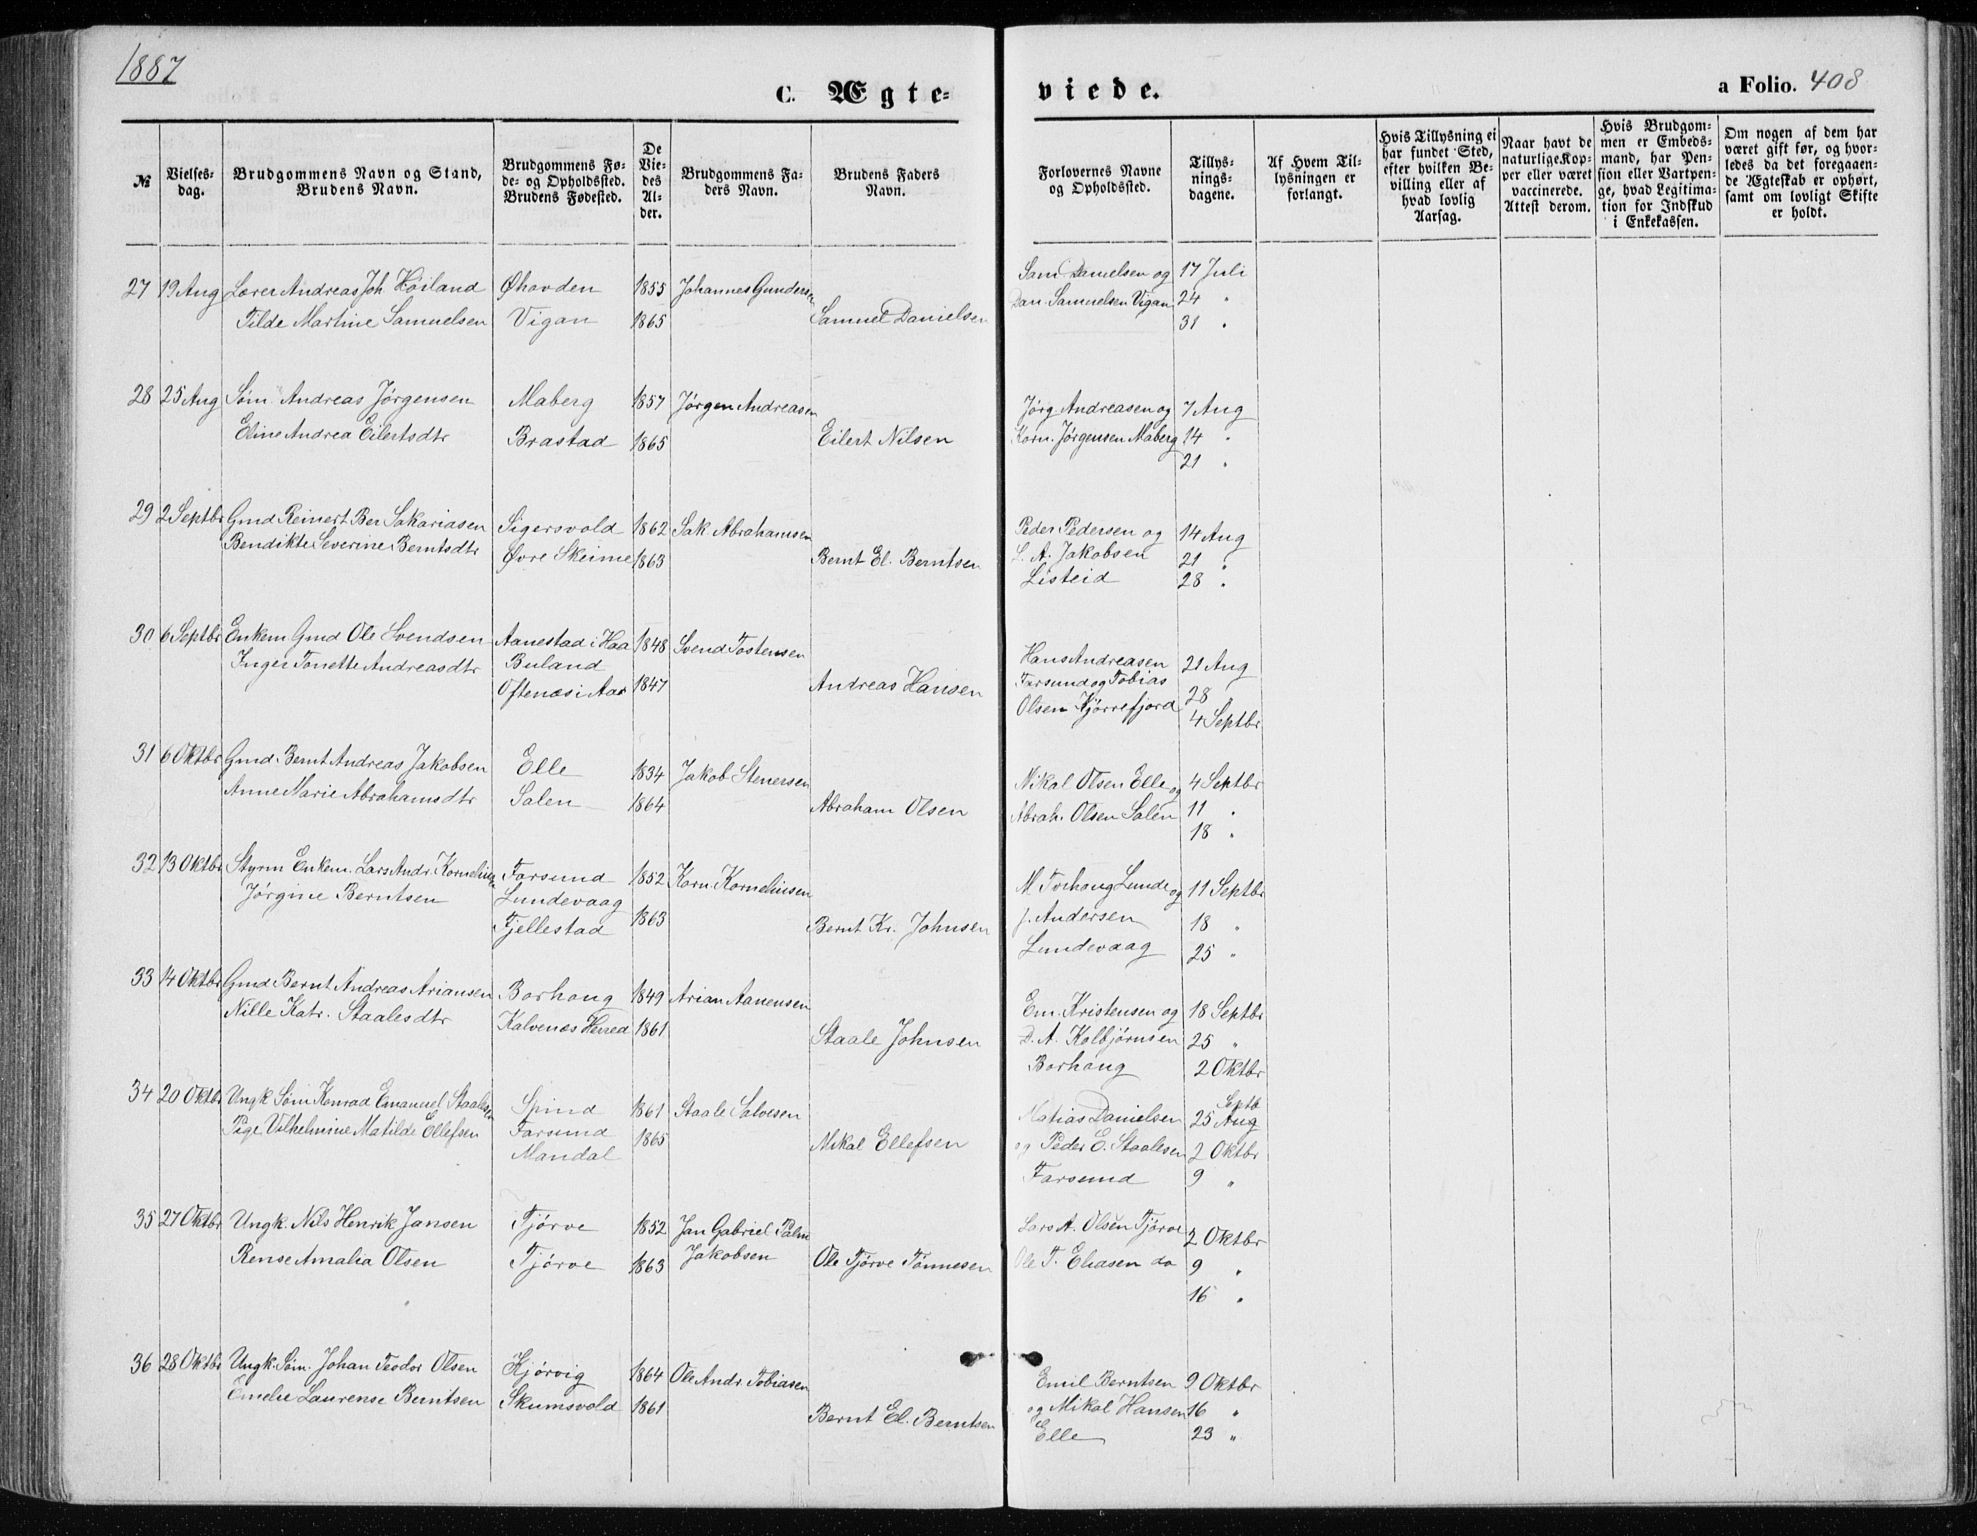 1887
C. Ægte-
viede.
a Folio. 408
№
Vielses-
dag.
Brudgommens Navn og Stand,
Brudens Navn.
Brudgommens Fø-
de- og Opholdssted.
Brudens Fødested.
De
Vie-
des
Al-
der.
Brudgommens Fa-
ders Navn.
Brudens Faders
Navn.
Forlovernes Navne
og Opholdssted.
Tillys-
nings-
dagene.
Af Hvem Til-
lysningen er
forlangt.
Hvis Tillysning ei
har fundet Sted,
efter hvilken Be-
villing eller af
hvad lovlig
Aarsag.
Naar havt de
naturlige Kop-
per eller været
vaccinerede.
Attest derom.
Hvis Brudgom-
men er Embeds-
mand, har Pen-
sion eller Vartpen-
ge, hvad Legitima-
tion for Indskud
i Enkekassen.
Om nogen af dem har
været gift før, og hvor-
ledes da det foregaaen-
de Ægteskab er ophørt,
samt om lovligt Skifte
er holdt.
27 19 Aug Lærer Andreas Joh Høiland Øhovden 1855 Johannes Gundersen Sam Danielsen og 17 Juli
Tilde Martine Samuelsen Vigan 1865 Samuel Danielsen Dan Samuelsen Vigan 24 "
31 "
28 25 Aug Søm Andreas Jørgensen Maberg 1857 Jørgen Andreasen Jørg Andreasen og 7 Aug
Eline Andrea Eilertsdtr Brastad 1865 Eilert Nilsen Korn. Jørgensen Maberg 14 "
21 "
29 2 Septbr Gmd Reinert Ber Sakariasen Sigersvold 1862 Sak Abrahamsen Peder Pedersen og 14 Aug
Bendikte Severine Berntsdtr Øvre Skeime 1863 Bernt El. Berntsen L. A. Jakobsen 21 "
Listeid 28 "
30 6 Septbr Enkem Gmd Ole Svendsen Aanestad i Haa 1848 Svend Tostensen Hans Andreasen 21 Aug
Inger Tonette Andreasdtr Buland Farsund og Tobias 28 "
Oftenæs i Aas 1847 Andreas Hansen Olsen Kjørrefjord 4 Septbr
31 6 Oktbr Gmd. Bernt Andreas Jakobsen Elle 1834 Jakob Stenersen Nikal Olsen Elle og 4 Septbr
Anne Marie Abrahamsdtr Salen 1864 Abraham Olsen Abrah. Olsen Salen 11 "
18 "
32 13 Oktbr Styrm Enkem. Lars Andr. Kornelius Farsund 1852 Korn. Korneliusen M. Torhoug Lunde og 11 Septbr
Jørgine Berntsen Lundevaag J. Andersen 18 "
Fjellestad 1863 Bernt Kr. Johnsen Lundevaag 25 "
33 14 Oktbr Gmd Bernt Andreas Ariansen Borhoug 1849 Arian Aanensen Em. Kristensen og 18 Septbr
Nille Katr. Staalesdtr Kalvenæs Herred 1861 Staale Johnsen D. A. Kolbjørnsen 25 "
Borhoug 2 Oktbr
34 20 Oktbr Ungk Søm Konrad Emanuel Staalesen Spind 1861 Staale Salvesen Matias Danielsen 25 Aug Septb
Pige Vilhelmine Matilde Ellefsen Farsund 1865 Mikal Ellefsen og Peder E. Staalesen 2 Oktbr
Mandal Farsund 9 "
35 27 Oktbr Ungk. Nils Henrik Jansen Tjørve 1852 Jan Gabriel Palm Lars A. Olsen Tjørve 2 Oktbr
Rense Amalia Olsen Tjørve 1863 Jakobsen Ole Tjørve Tønnesen Ole T. Eliasen do 9 "
16 "
36 28 Oktbr Ungk. Søm. Johan Teodor Olsen Kjørvig 1864 Ole Andr Tobiasen Emil Berntsen 9 Oktbr
Emelie Laurense Berntsen Skumsvold 1861 Bernt El. Berntsen og Mikal Hansen 16 "
Elle 23 "